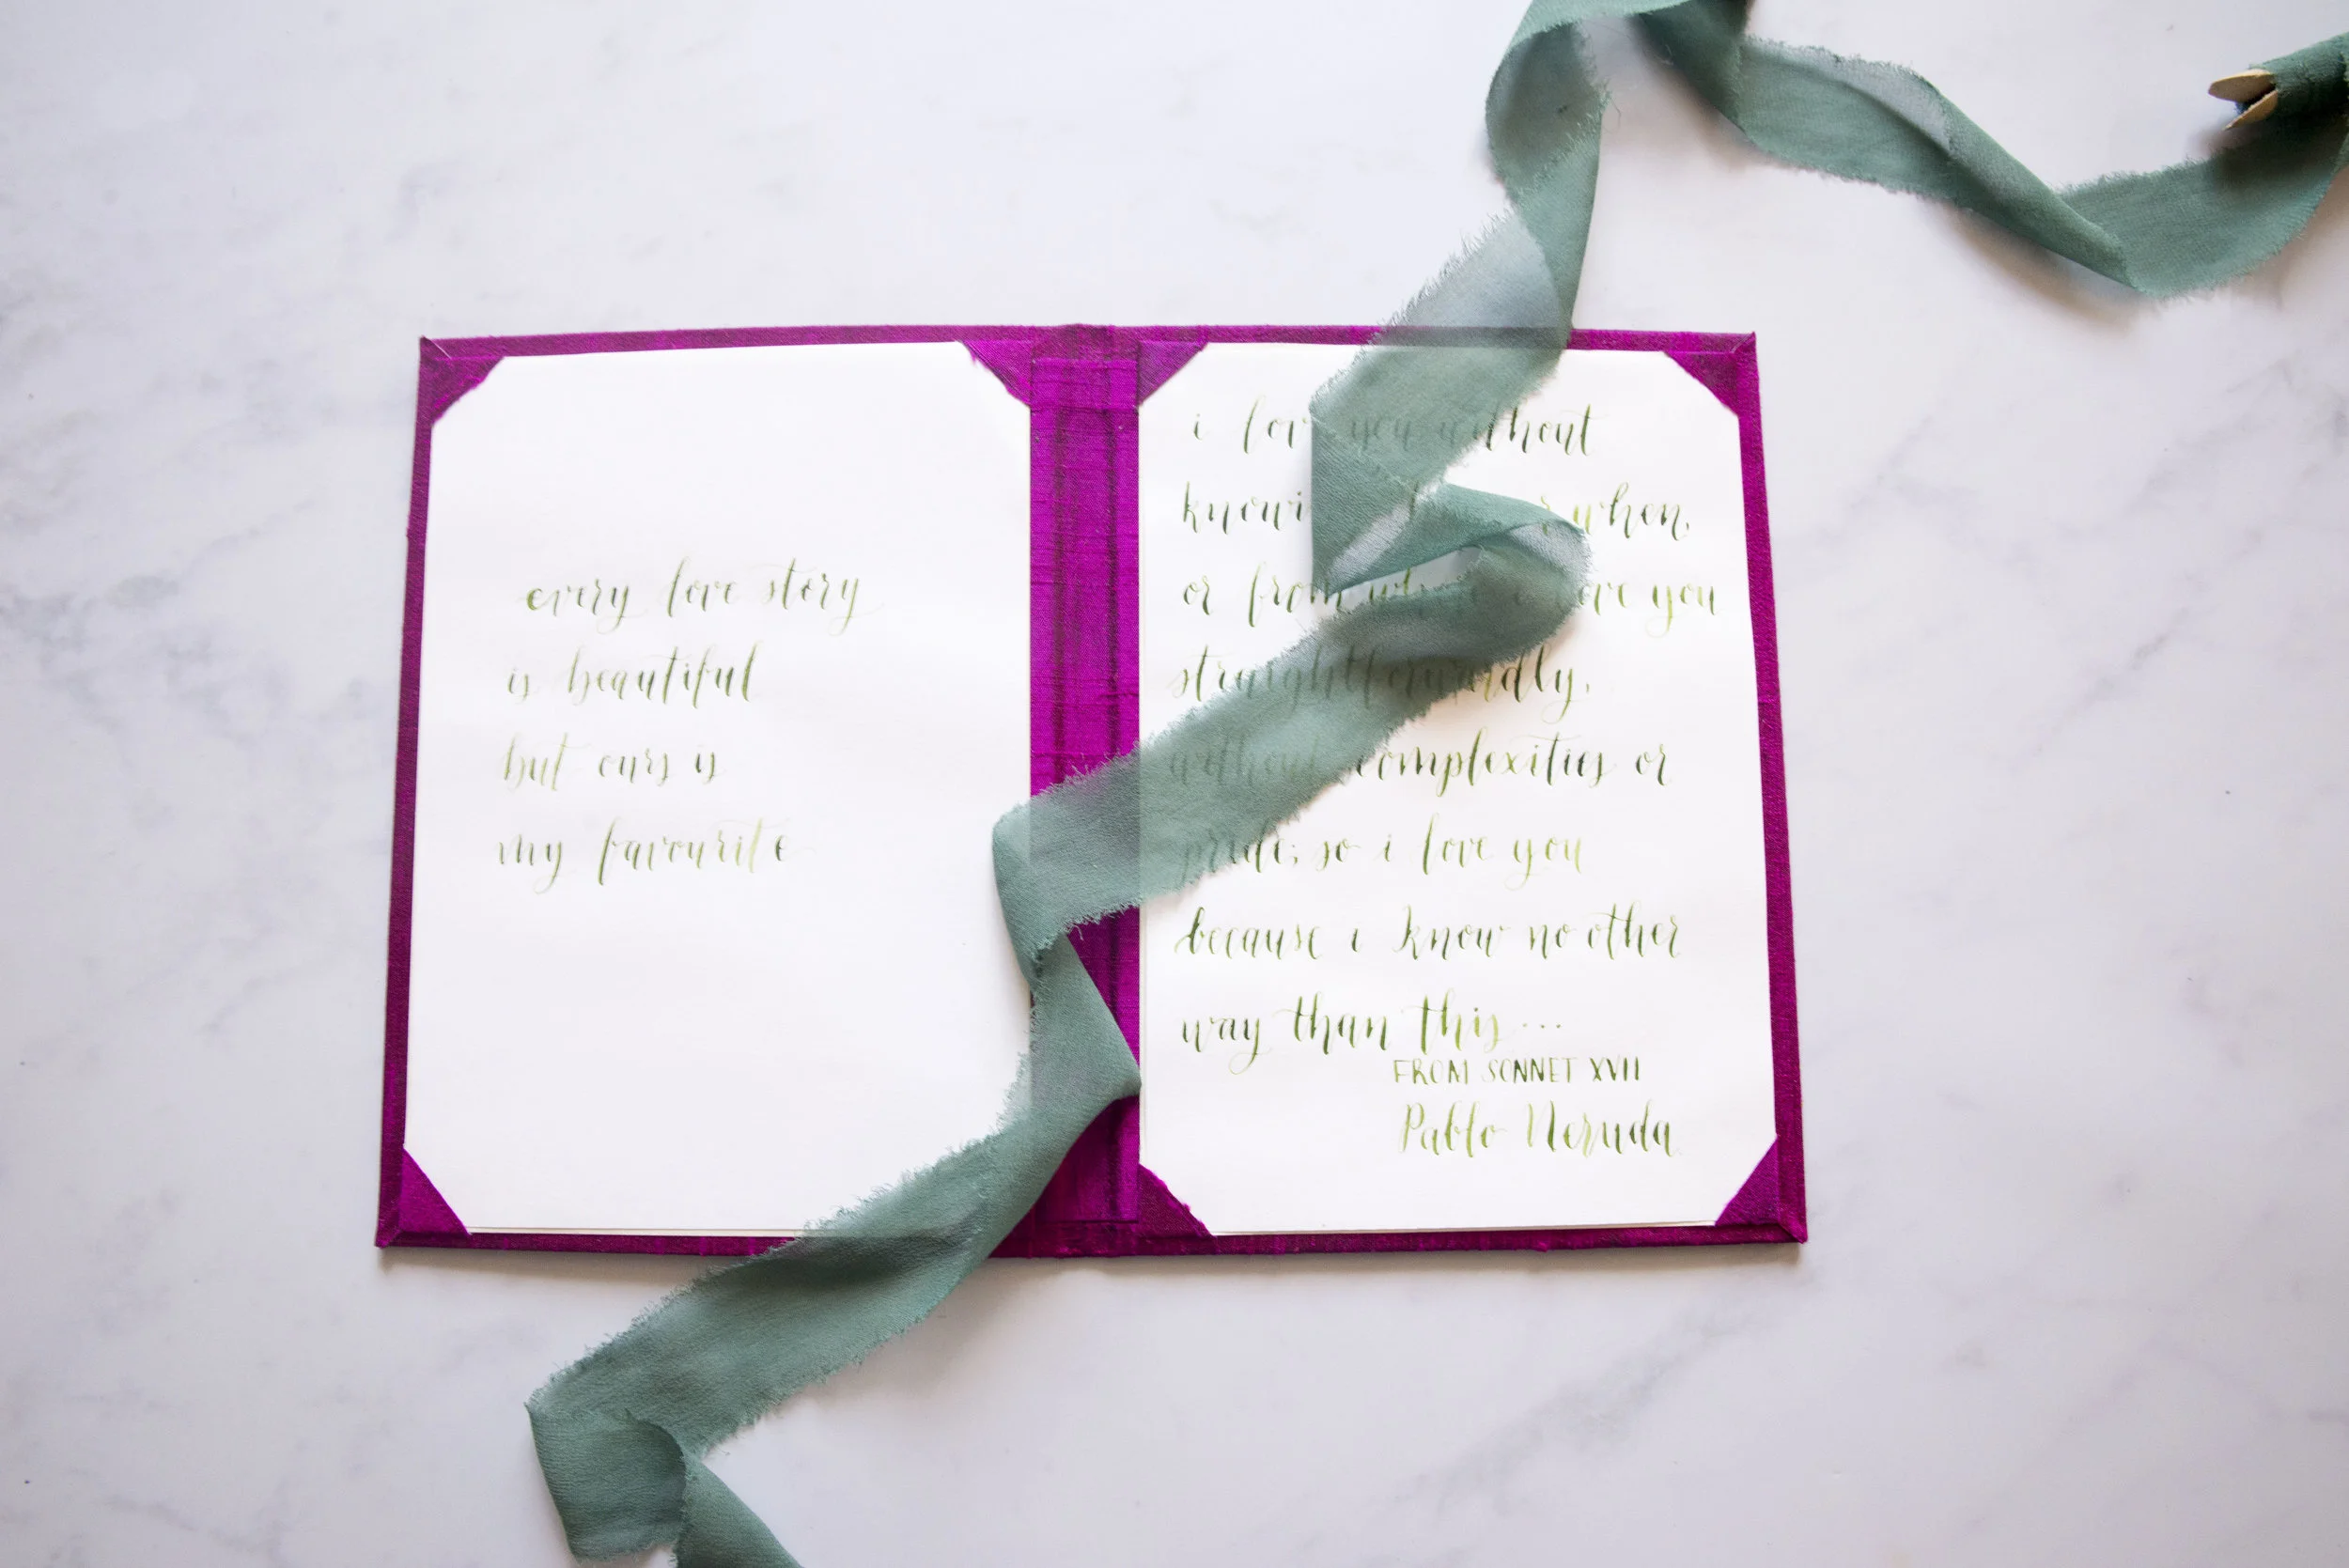 every love story
is beautiful
but ours is
my favourite
i love you without
when,
or from where i love you
straightforwardly,
without complexities or
pride; so i love you
because i know no other
way than this...
FROM SONNET XVII
Pablo Neruda